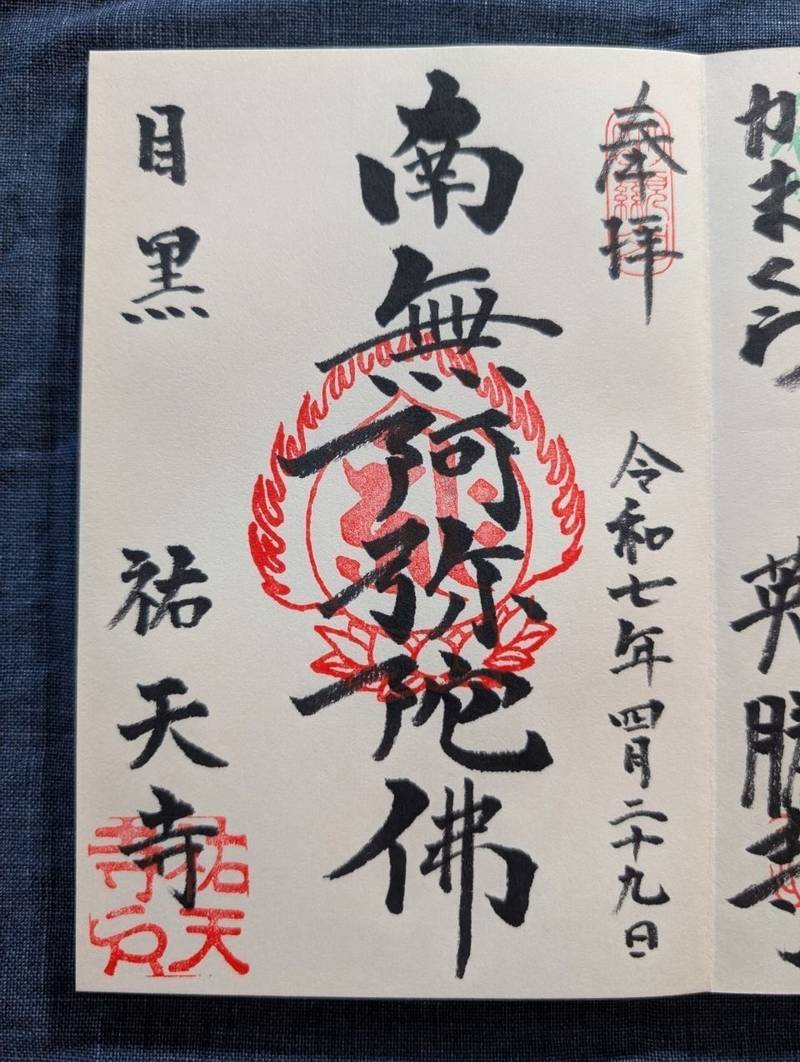 かまくら 英勝寺
奉拝 令和七年四月二十九日
南無阿弥陀佛
目黒 祐天寺
祐天寺